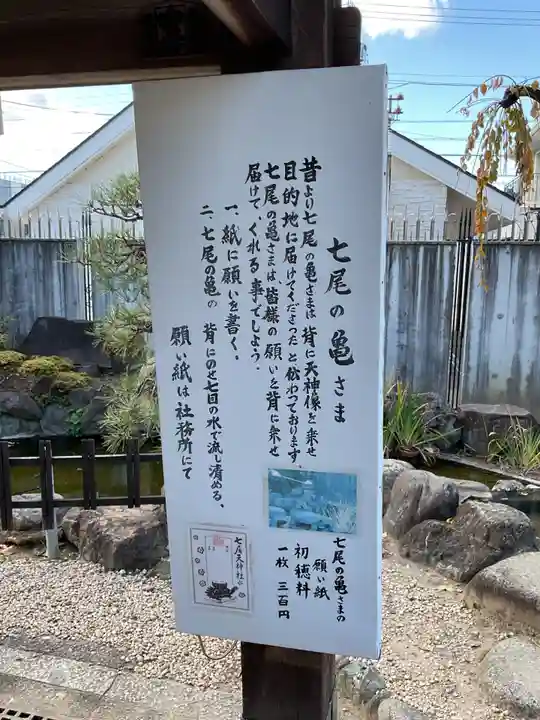 七尾の亀さま
昔より七尾の亀さまは背に天神像を乗せ
目的地に届けてくださったと伝わっております
七尾の亀さまは皆様の願いを背に乗せ
届けて、くれる事でしょう。
一、紙に願いを書く。
二、七尾の亀の背にのせ七回の水で流し清める、
願い紙は社務所にて
七尾の亀さまの
願い紙
初穂料
一枚 三百円
七尾天神社